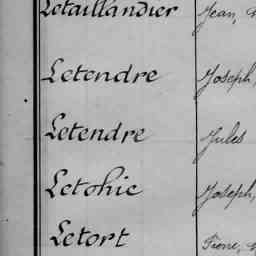 Letaillandier Jean,
Letendre Joseph,
Letendre Jules
Letohic Joseph,
Letort Pierre,